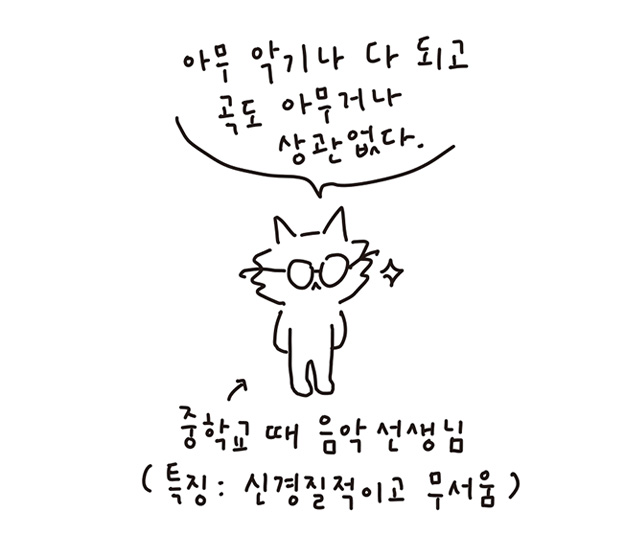 아무 악기나 다 되고
곡도 아무거나
상관없다.
중학교 때 음악선생님
(특징: 신경질적이고 무서움)